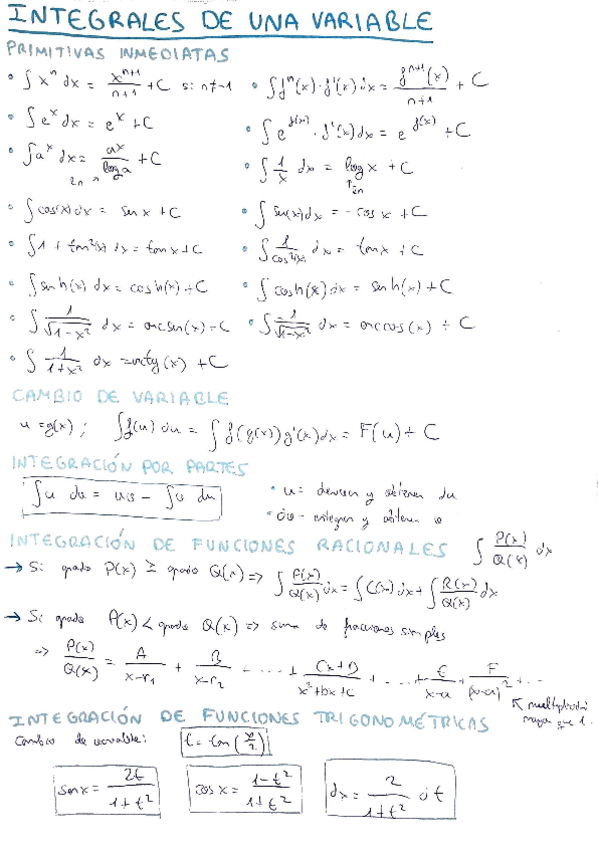 INTEGRALES DE UNA VARIABLE
PRIMITIVAS INMEDIATAS
• ∫ xⁿ dx = xⁿ⁺¹/(n+1) + C si n≠-1 • ∫ fⁿ(x)·f'(x) dx = fⁿ⁺¹(x)/(n+1) + C
• ∫ eˣ dx = eˣ + C • ∫ e^f(x) · f'(x) dx = e^f(x) + C
• ∫ aˣ dx = aˣ/log a + C • ∫ 1/x dx = log x + C
ln ↗ ↑ ln
• ∫ cos(x) dx = sen x + C • ∫ sen(x) dx = - cos x + C
• ∫ 1 + tan²(x) dx = tan x + C • ∫ 1/cos²(x) dx = tan x + C
• ∫ senh(x) dx = cosh(x) + C • ∫ cosh(x) dx = senh(x) + C
• ∫ 1/√(1-x²) dx = arcsen(x) + C • ∫ -1/√(1-x²) dx = arccos(x) + C
• ∫ 1/(1+x²) dx = arctg(x) + C
CAMBIO DE VARIABLE
u = g(x) ; ∫ f(u) du = ∫ f(g(x)) g'(x) dx = F(u) + C
INTEGRACIÓN POR PARTES
∫ u dv = uv - ∫ v du
• u = derivar y obtener du
• dv = integrar y obtener v
INTEGRACIÓN DE FUNCIONES RACIONALES ∫ P(x)/Q(x) dx
→ Si grado P(x) ≥ grado Q(x) => ∫ P(x)/Q(x) dx = ∫ C(x) dx + ∫ R(x)/Q(x) dx
→ Si grado P(x) < grado Q(x) => suma de fracciones simples
=> P(x)/Q(x) = A/(x-r₁) + B/(x-r₂) + ... + (Cx+D)/(x²+bx+c) + ... + E/(x-a) + F/(x-a)² + ...
↖ multiplicidad
mayor que 1.
INTEGRACIÓN DE FUNCIONES TRIGONOMÉTRICAS
Cambio de variable: t = tan(x/2)
sen x = 2t/(1+t²) cos x = (1-t²)/(1+t²) dx = 2/(1+t²) dt